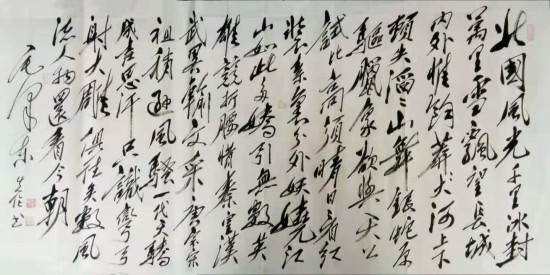 北國風光千里冰封
萬里雪飄望長城
内外惟餘莽莽大河上下
頓失滔滔山舞銀蛇原
驅臘象欲與天公
試比高須晴日看紅
裝素裹分外妖嬈江
山如此多嬌引無數英
雄競折腰惜秦皇漢
武畧輸文采唐宗宋
祖稍遜風騷一代天驕
成吉思汗只識彎弓
射大雕俱往矣數風
流人物還看今朝
毛澤東 書